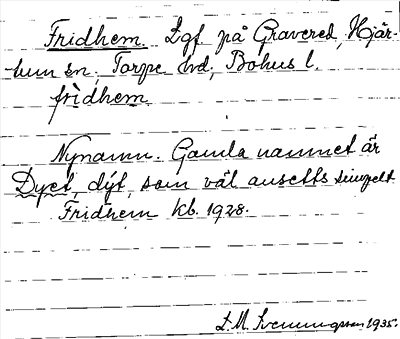 Fridhem. Lgf. på Gravered, Hjär-
tum sn. Torpe hd, Bohus l.
fridhem
Nynamn. Gamla namnet är
Dyet, dýt, som väl ansetts simpelt
Fridhem kb. 1928.
L. M. Svenungsson 1935.